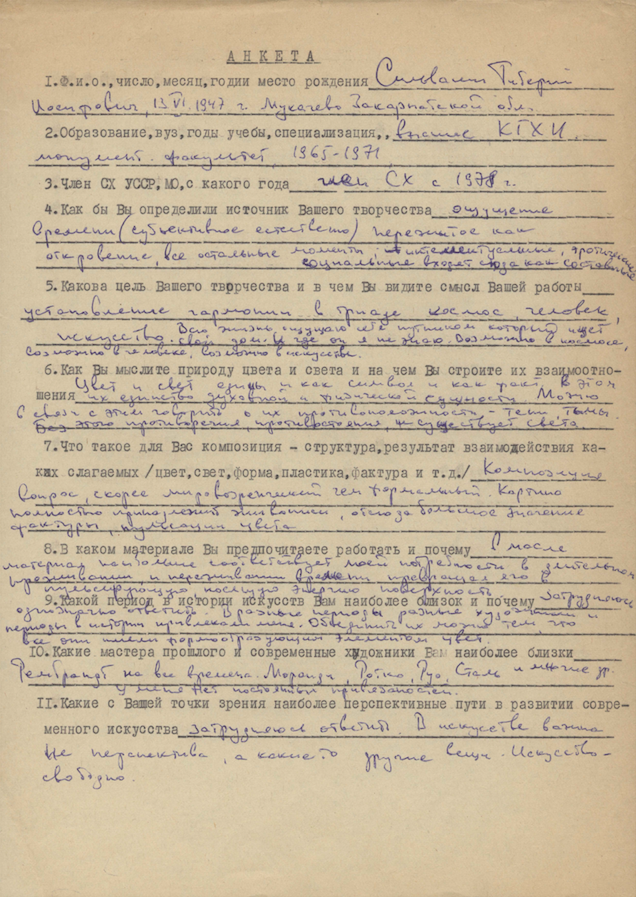 АНКЕТА
1.Ф.и.о.,число,месяц,годии место рождения Сильваши Тиберий
Иосифович, 13 VI 1947 г. Мукачево Закарпатской обл.
2.Образование,вуз,годы учебы,специализация,, высшее КГХИ,
монумент. факультет, 1965-1971
3.Член СХ УССР,МО,с какого года член СХ с 1978 г.
4.Как бы Вы определили источник Вашего творчества ощущение
времени (субъективное естественно) пережитое как
откровение, все остальные моменты: интеллектуальные, эротические
социальные входят сюда как составные
5.Какова цель Вашего творчества и в чем Вы видите смысл Вашей работы
установление гармонии в триаде космос, человек,
искусство. Всю жизнь ощущаю себя путником который ищет
свой дом. И где он я не знаю. Возможно в космосе,
возможно в человеке, возможно в искусстве.
6.Как Вы мыслите природу цвета и света и на чем Вы строите их взаимоотно-
шения Цвет и свет едины и как символ и как факт, в этом
их единство духовной и физической сущности Можно
в связи с этим говорить о их противоположности - тени, тьмы.
Без этого противоречия, противостояния, не существует света
7.Что такое для Вас композиция - структура,результат взаимодействия ка-
ких слагаемых /цвет,свет,форма,пластика,фактура и т.д./ Композиция
вопрос, скорее мировоззренческий чем формальный. Картина
полностью принадлежит живописи, отсюда большое значение
фактуры, пульсации цвета
8.В каком материале Вы предпочитаете работать и почему В масле
материал наиболее соответствует моей потребности в длительном
проживании, и переживании времени превращая его в
пульсирующую несущую энергию поверхность
9.Какой период в истории искусств Вам наиболее близок и почему Затрудняюсь
однозначно ответить. В разные периоды разные художники и
периоды в истории привлекали меня. Объединить их можно тем, что
все они имели формообразующим элементом цвет.
10.Какие мастера прошлого и современные художники Вам наиболее близки
Рембрандт на все времена. Моранди, Ротко, Руо, Сталь и многие др.
У меня нет постоянных привязанностей.
11.Какие с Вашей точки зрения наиболее перспективные пути в развитии совре-
менного искусства затрудняюсь ответить. В искусстве важна
не перспектива, а какие-то другие вещи. Искусство-
свободно.